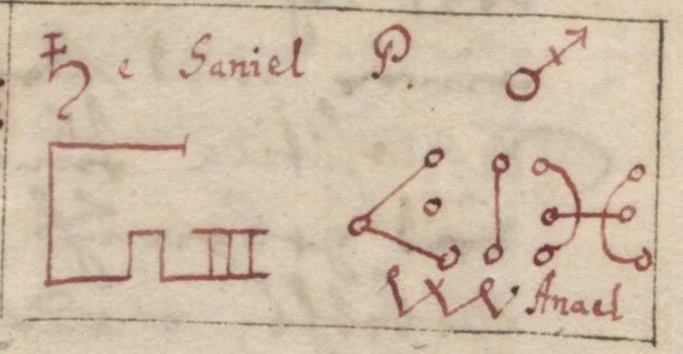 ♄ e Saniel P. ♂
Anael